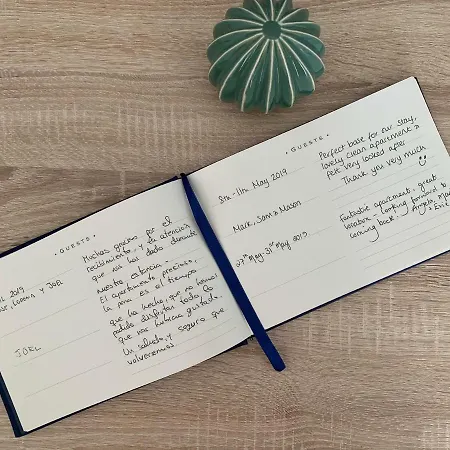 GUESTS
2019
LORENA Y JOEL
JOEL
Muchas gracias por el
recibimiento, y la atención
que nos ha dado durante
nuestra estancia.
El apartamento precioso,
la pena es el tiempo
que ha hecho, que no hemos
podido disfrutar todo lo
que nos hubiera gustado.
Un saludo, y seguro que
volveremos.
GUESTS
8th-11th May 2019
Mark, Sam & Mason
Perfect base for our stay,
lovely clean apartment &
felt very looked after
Thank you very much
27th May-31st May 2019
Fantastic apartment - great
location - looking forward to
coming back! Angela,